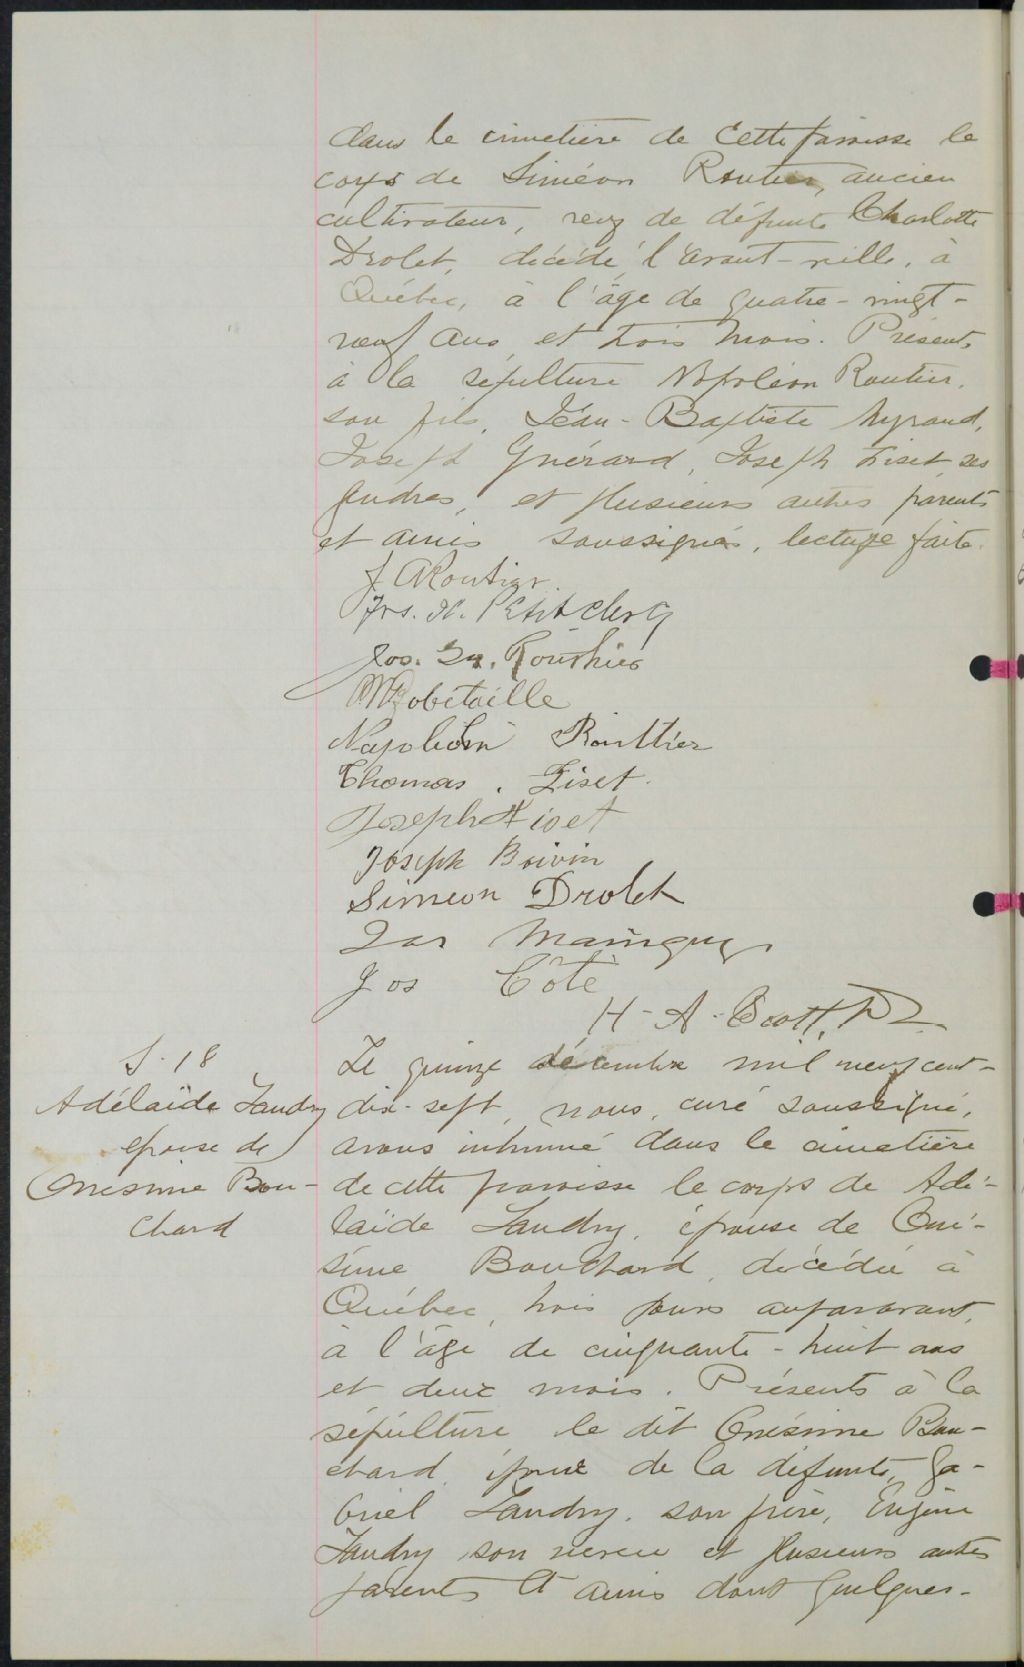 dans le cimetière de cette paroisse le
corps de Siméon Routier, ancien
cultivateur, veuf de défunte Charlotte
Drolet, décédé l'avant-veille, à
Québec, à l'âge de quatre-vingt-
neuf ans et trois mois. Présents
à la sépulture Napoléon Routier,
son fils, Jean-Baptiste Myrand,
Joseph Guérard, Joseph Fiset ses
gendres, et plusieurs autres parents
et amis soussignés, lecture faite.
J A Routier
Frs. X. Petitclerc
Jos. Routhier
Robitaille
Napoléon Routtier
Thomas. Fiset.
Joseph Fiset
Joseph Boivin
Simeon Drolet
Mainguy
Jos Côté
H-A-Scott, Ptre
S. 18
Adélaïde Landry
épouse de
Onésime Bou-
chard
Le quinze décembre mil neuf cent-
dix-sept, nous, curé soussigné,
avons inhumé dans le cimetière
de cette paroisse le corps de Adé-
laïde Landry, épouse de Oné-
sime Bouchard, décédée à
Québec, trois jours auparavant,
à l'âge de cinquante-huit ans
et deux mois. Présents à la
sépulture le dit Onésime Bou-
chard, époux de la défunte, Ga-
briel Landry, son frère, Eugène
Landry son neveu et plusieurs autres
parents et amis dont quelques-